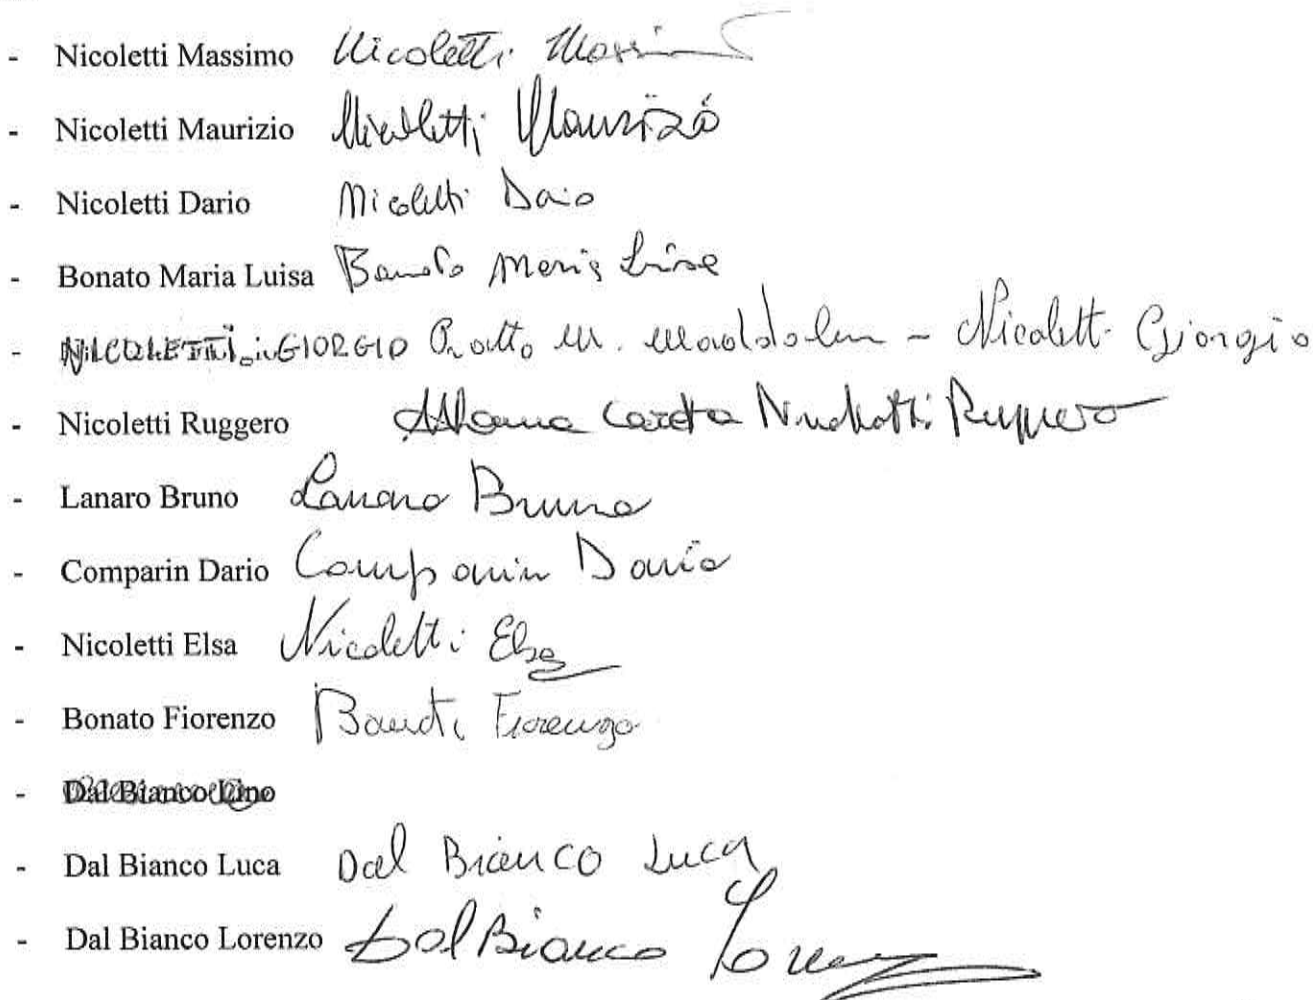 - Nicoletti Massimo Nicoletti Massimo
- Nicoletti Maurizio Nicoletti Maurizio
- Nicoletti Dario Nicoletti Dario
- Bonato Maria Luisa Bonato Maria Luisa
- NICOLETTI GIORGIO M. Maddalena - Nicoletti Giorgio
- Nicoletti Ruggero Carlotta Nicoletti Ruggero
- Lanaro Bruno Lanaro Bruno
- Comparin Dario Comparin Dario
- Nicoletti Elsa Nicoletti Elsa
- Bonato Fiorenzo Bonato Fiorenzo
- Dal Bianco Lino
- Dal Bianco Luca Dal Bianco Luca
- Dal Bianco Lorenzo Dal Bianco Lorenzo